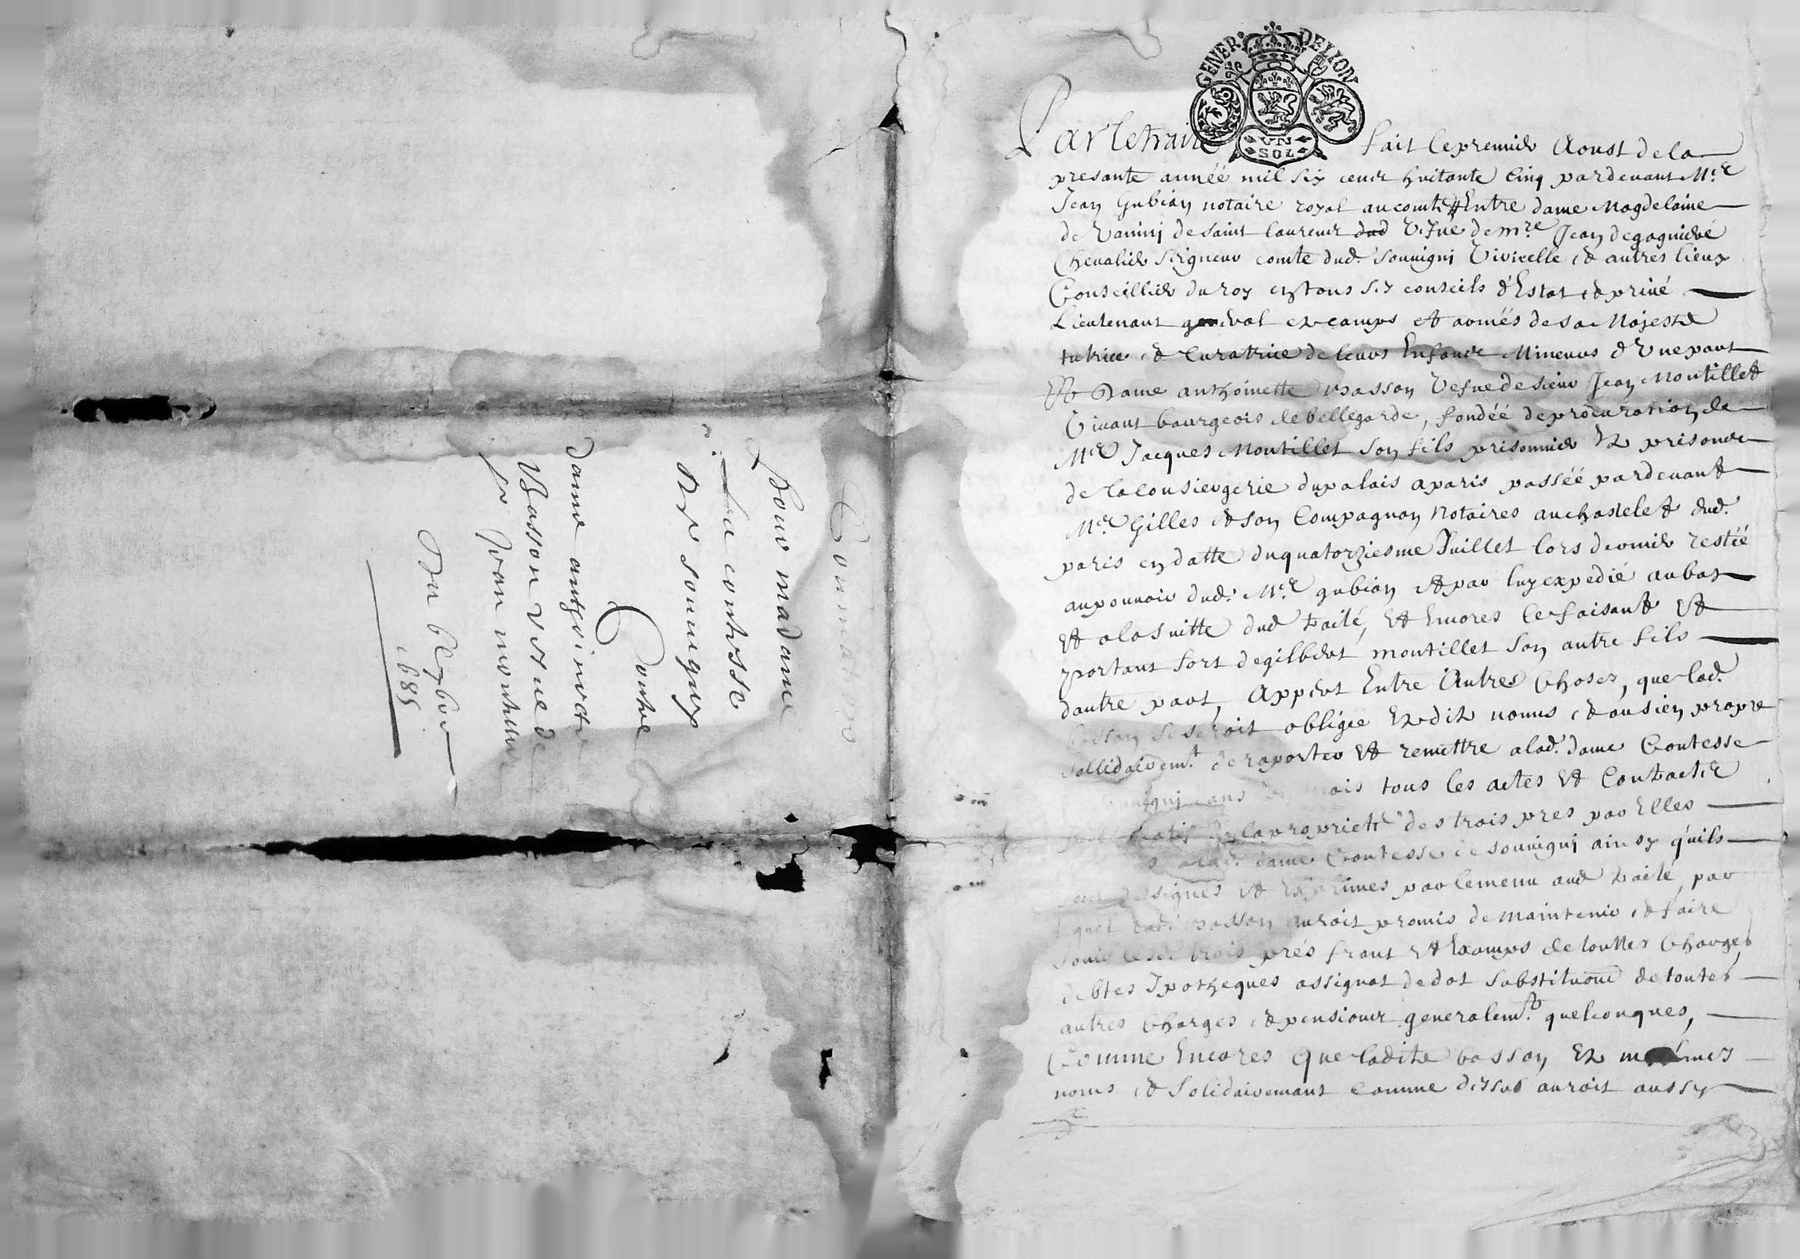 Sommaire
Pour madame
La contesse
de souvigny
Contre
dame anthoinette
Basson vefve de
Sr Jean montillet
Du 6e 7bre
1685
GENER. DE LION
UN
SOL
Par le traité fait le premier Aoust de la
presante année mil six cent huitante cinq pardevant Mre
Jean Gubian notaire royal au comté Entre dame Magdelaine
de Vainnj de saint laurent dud Vefve de Mre Jean de gagniere
Chevalier seigneur comte dud. Souvigni Vivirelle & autres lieux
Conseillier du roy en tous ses conseils d'Estat & privé
Lieutenant general ez camps et armés de sa Majesté
tutrice & Curatrice de leurs Enfans Mineurs d'Une part
Et Dame anthoinette Basson Vefve de sieur Jean Montillet
Vivant bourgeois de bellegarde, fondéé de procuration de
Mre Jacques Montillet son fils prisonnier Ez prisons
de la consiergerie du palais a paris passéé pardevant
Mre Gilles & son Compagnon Notaires au chastelet dud.
paris en datte du quatorziesme Juillet lors dernier restéé
au pouvoir dud. Mre gubian et par luy expedié au bas
et a la suitte dud traité, et Encores se faisant et
portant fort de gilbert montillet son autre fils
dautre part, Appert Entre Autres Choses, que lad.
basson se seroit obligée Ez dits noms & au sien propre
sollidairemt. de raporter et remettre a lad. dame Contesse
mois tous les actes et Contractz
de la proprieté des trois pres par Elles
dame Contesse de souvigni ainsy quils
designés et Exprimes par le menu aud traité, par
lequel lad. basson auroit promis de maintenir & faire
lesd. trois prés francs et Exemps de touttes Charges
debtes Ipotheques assignat de dot substitution de toutes
autres Charges & pensions generalemt. quelconques,
Comme Encores que ladite basson, Ez mesmes
noms & solidairemant comme dessus auroit aussy